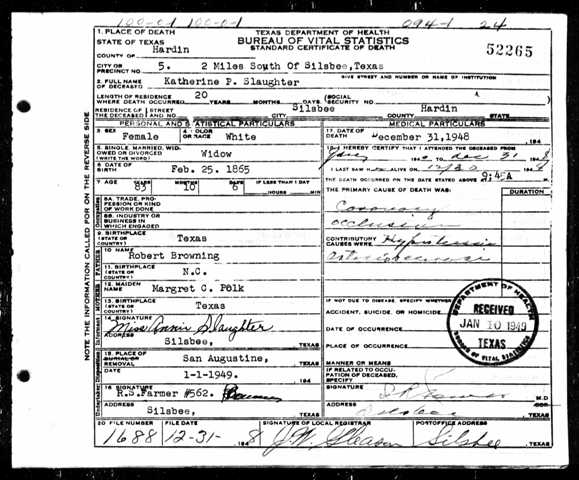 100-01 100-0-1 094-1 24
1. PLACE OF DEATH TEXAS DEPARTMENT OF HEALTH
STATE OF TEXAS BUREAU OF VITAL STATISTICS
COUNTY OF Hardin STANDARD CERTIFICATE OF DEATH 52265
CITY OR PRECINCT NO. 5. 2 Miles South Of Silsbee,Texas
GIVE STREET AND NUMBER OR NAME OF INSTITUTION
2. FULL NAME OF DECEASED Katherine P. Slaughter
LENGTH OF RESIDENCE WHERE DEATH OCCURRED 20 YEARS MONTHS DAYS (SOCIAL SECURITY NO.
RESIDENCE OF THE DECEASED (STREET AND NO. Silsbee CITY Hardin COUNTY STATE
PERSONAL AND STATISTICAL PARTICULARS MEDICAL PARTICULARS
3. SEX Female 4. COLOR OR RACE White
17. DATE OF DEATH December 31,1948 194
5. SINGLE, MARRIED, WIDOWED OR DIVORCED (WRITE THE WORD) Widow
18. I HEREBY CERTIFY THAT I ATTENDED THE DECEASED FROM
194 TO Dec 31 1948
6. DATE OF BIRTH Feb. 25. 1865
I LAST SAW ALIVE ON 12/30 1948
7. AGE YEARS 83 MONTHS 10 DAYS 6 IF LESS THAN 1 DAY HOURS MIN
THE DEATH OCCURRED ON THE DATE STATED ABOVE AT 9:45A M
THE PRIMARY CAUSE OF DEATH WAS: DURATION
8A. TRADE, PROFESSION OR KIND OF WORK DONE
Coronary
8B. INDUSTRY OR BUSINESS IN WHICH ENGAGED
occlusion
9. BIRTHPLACE (STATE OR COUNTRY) Texas
CONTRIBUTORY CAUSES WERE Hypertension
10. NAME Robert Browning
11. BIRTHPLACE (STATE OR COUNTRY) N.C.
12. MAIDEN NAME Margret C. Polk
13. BIRTHPLACE (STATE OR COUNTRY) Texas
IF NOT DUE TO DISEASE, SPECIFY WHETHER
ACCIDENT, SUICIDE, OR HOMICIDE
14. SIGNATURE Miss Annie Slaughter
DATE OF OCCURRENCE
ADDRESS Silsbee, TEXAS
PLACE OF OCCURRENCE
DEPARTMENT OF HEALTH
RECEIVED
JAN 10 1949
TEXAS
BUREAU OF VITAL STATISTICS
15. PLACE OF BURIAL OR REMOVAL San Augustine, TEXAS
MANNER OR MEANS
DATE 1-1-1949. 194
IF RELATED TO OCCUPATION OF DECEASED, SPECIFY
16. SIGNATURE R.S.Farmer #562.
SIGNATURE M.D.
ADDRESS Silsbee, TEXAS
ADDRESS Silsbee TEXAS
20 FILE NUMBER FILE DATE SIGNATURE OF LOCAL REGISTRAR POSTOFFICE ADDRESS
1688 12-31- 1948 J.W. Gleason Silsbee TEXAS
NOTE THE INFORMATION CALLED FOR ON THE REVERSE SIDE